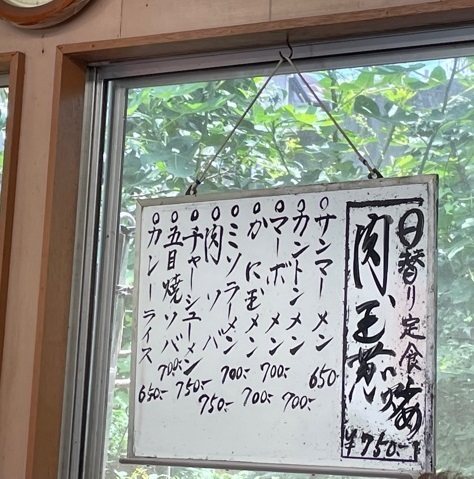 日替り定食
肉、玉葱炒め
¥750-
○サンマーメン 650.-
○カントンメン 700.-
○マーボメン 700.-
○かに玉メン 700.-
○ミソラーメン 700.-
○肉ソバ 750.-
○チャーシューメン 750.-
○五目焼ソバ 700.-
○カレーライス 650.-